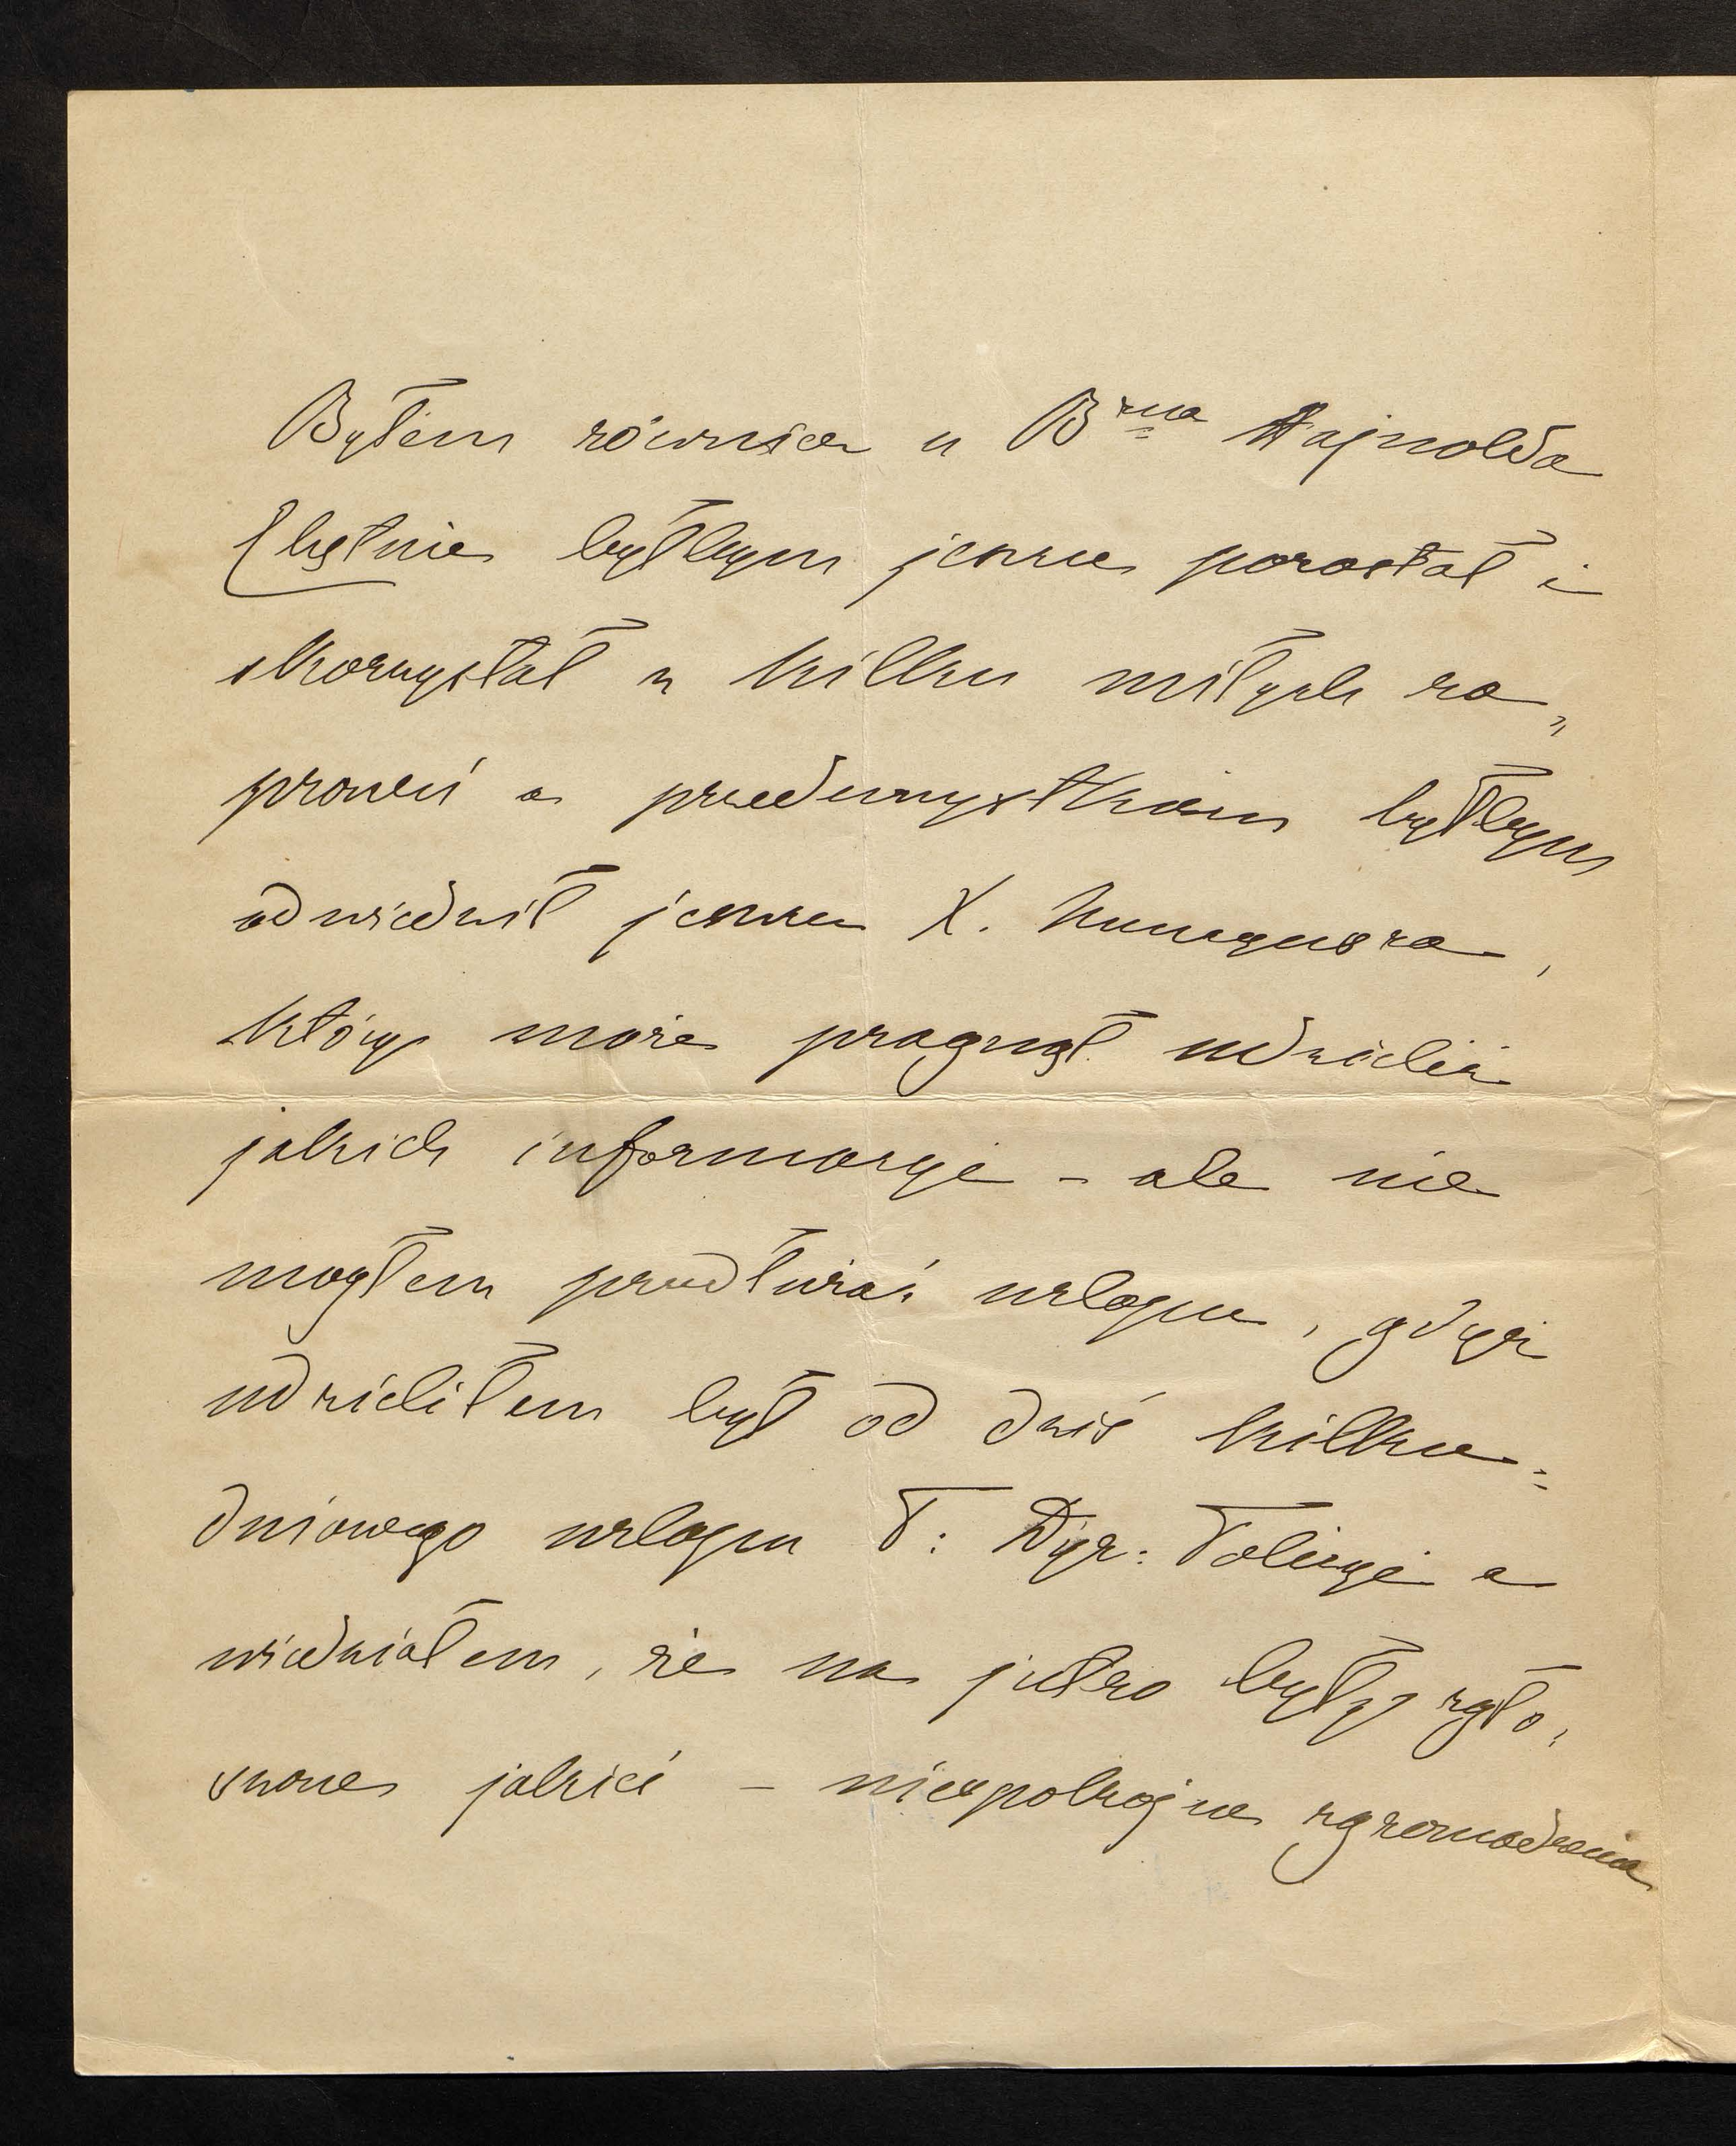 Byłem również u B<sup>rna</sup> Hajnolda
Chętnie byłbym jeszcze pozostał i
skorzystał z kilku miłych za„
proszeń a przedewszystkiem byłbym
odwiedził jeszcze X.
który może pragnął udzielić
jakich informacyi – ale nie
mogłem przedłużać urlopu, gdyż
udzieliłem był od dziś kilku=
dniowego urlopu P: Dyr: Policyi a
wiedziałem, że na jutro były zgło„
szone jakieś – niespokojne zgromadzenia